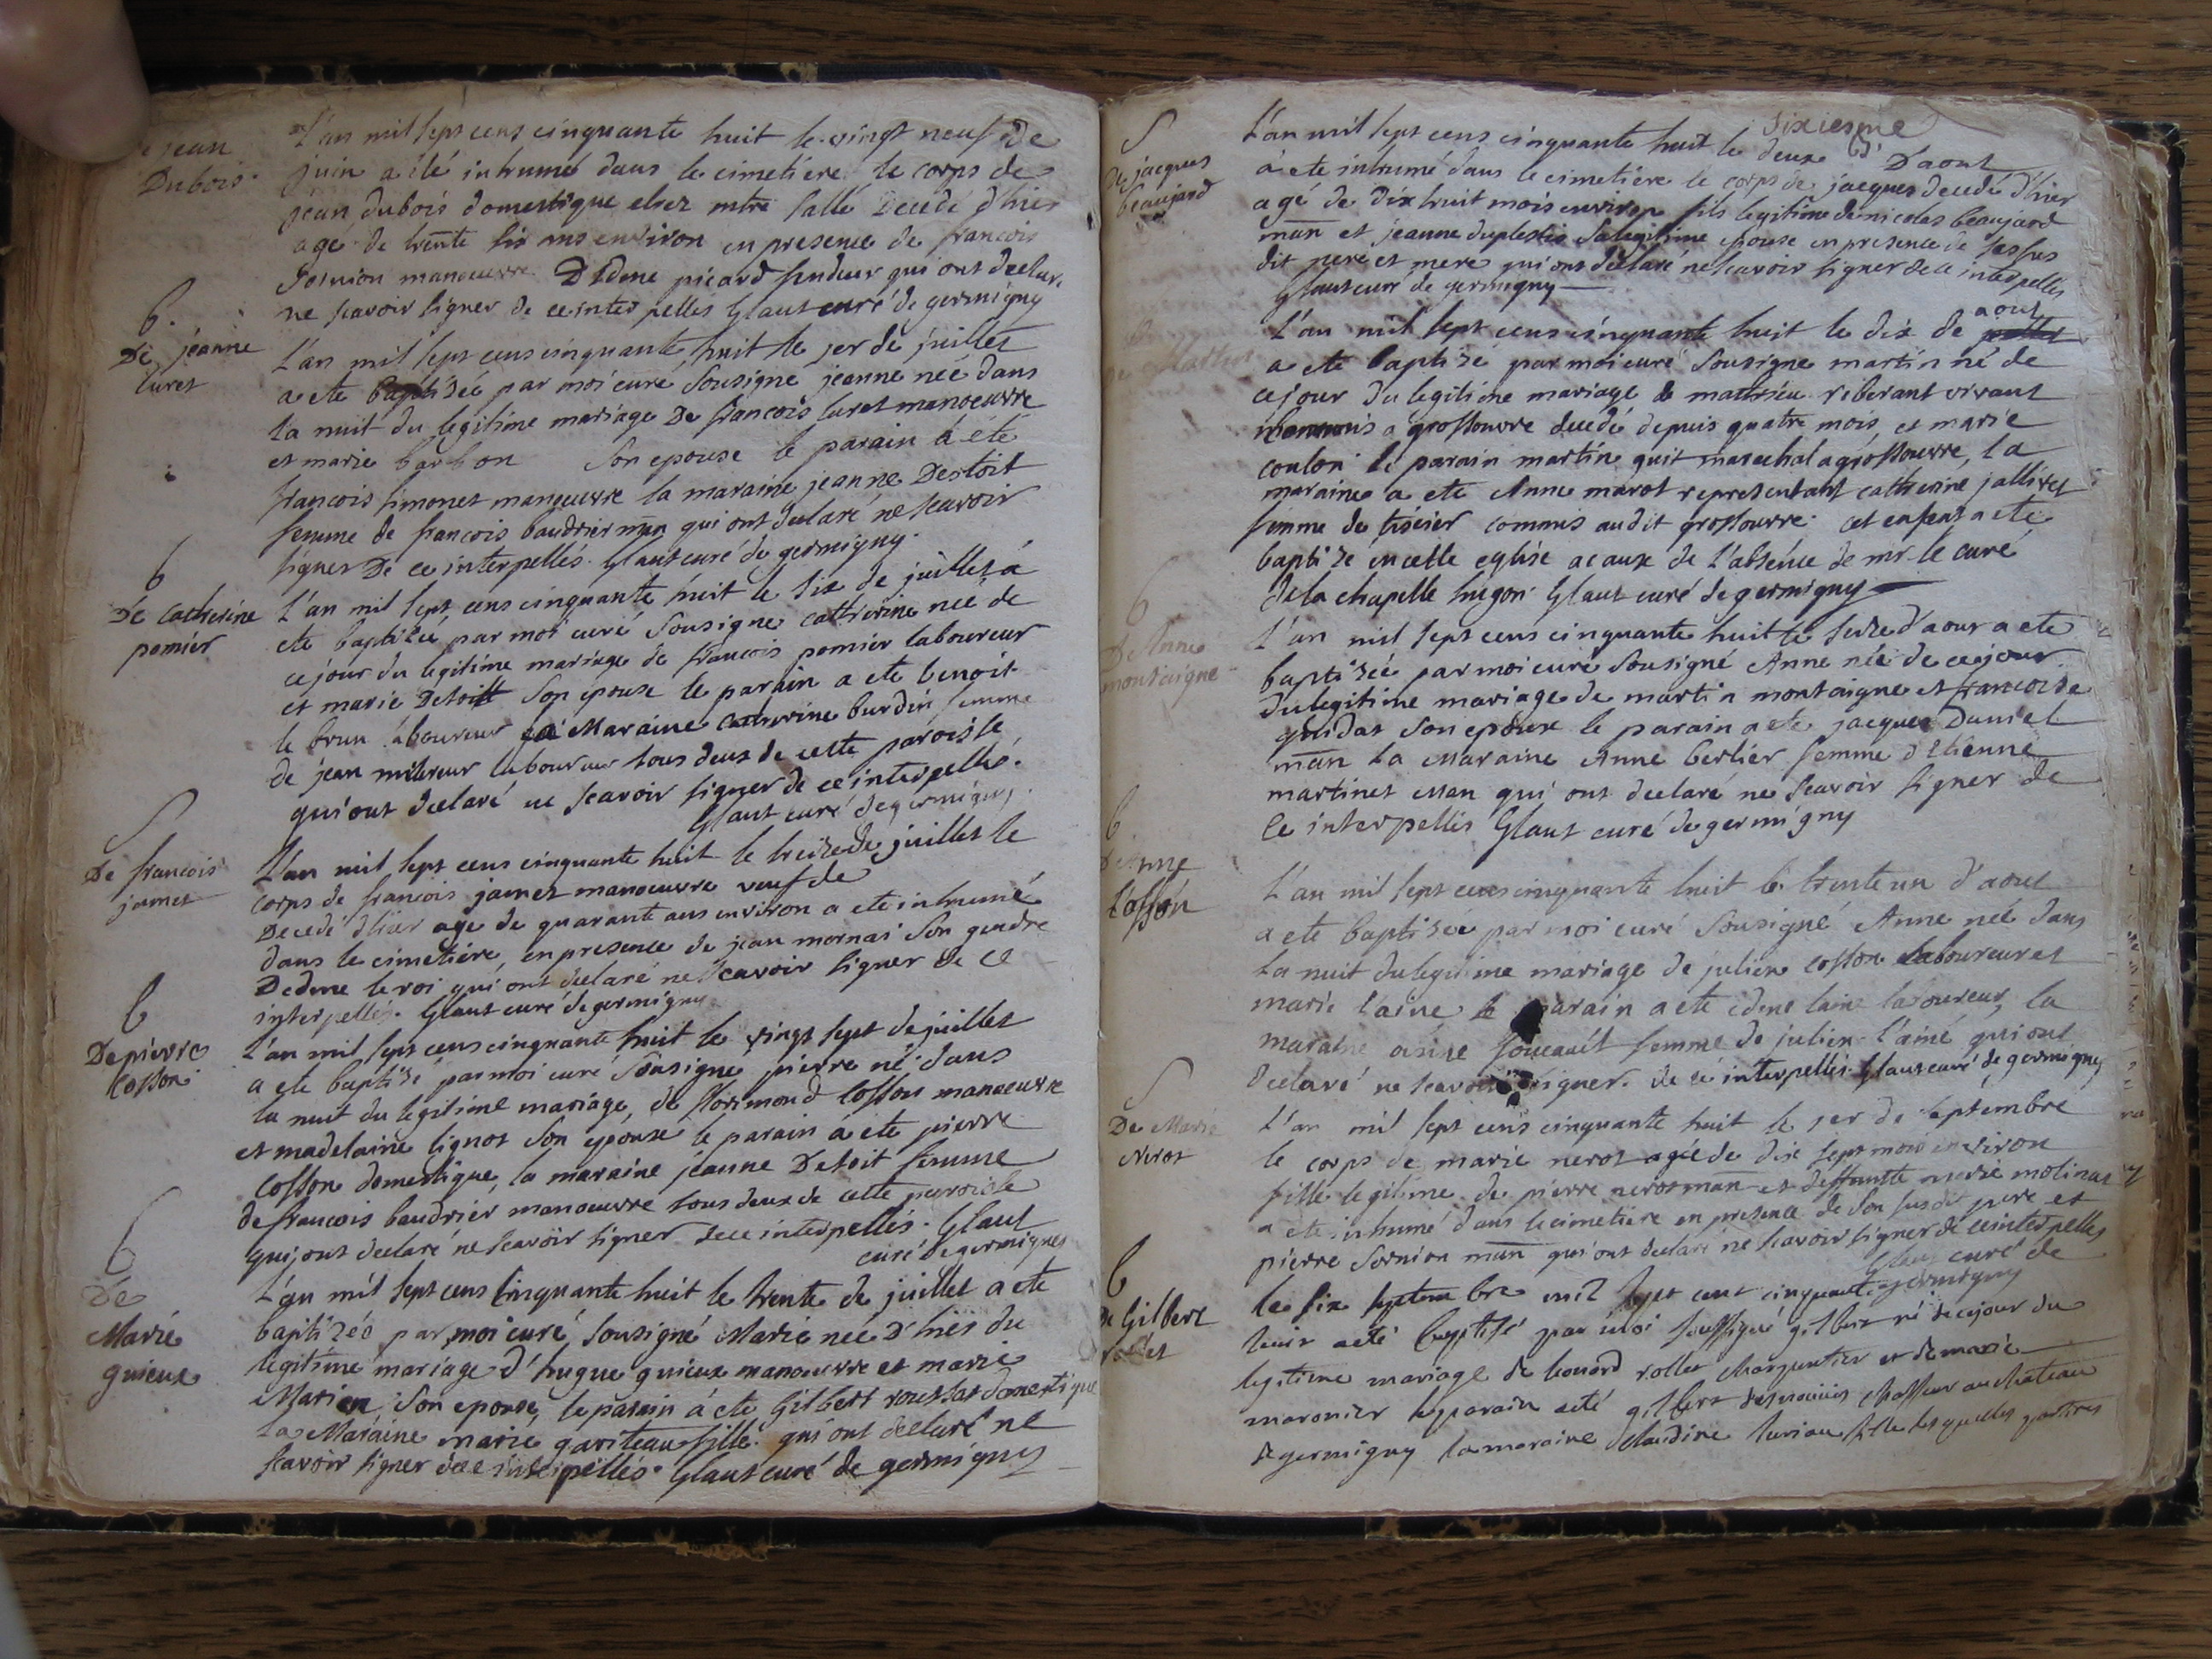 jean
Dubois
L'an mil sept cens cinquante huit le vingt neuf de
juin a été inhumé dans le cimetière le corps de
jean dubois domestique chez mtre sallé Decedé d'hier
agé de trente six ans environ en presence de francois
Sornion manoeuvre D'Edme picard fendeur qui ont declaré
ne scavoir signer de ce interpellés Glaut curé de germigny
b.
De jeanne
luret
L'an mil sept cens cinquante huit le 1er de juillet
a ete baptisée par moi curé sousigné jeanne née dans
la nuit du legitime mariage De francois luret manoeuvre
et marie barbon son epouse le parain a eté
francois simonet manoeuvre la maraine jeanne Destoit
femme de francois baudrier man qui ont declaré ne scavoir
signer De ce interpellés. Glaut curé de germigny.
b
De catherine
pomier
L'an mil sept cens cinquante huit le six de juillet a
ete baptisée par moi curé sousigné catherine née de
ce jour du legitime mariage de francois pomier laboureur
et marie Detoitt son epouse le parain a ete benoit
le brun laboureur la Maraine catherine burdin femme
de jean milereur laboureur tous deux de cette paroisse
qui ont declaré ne scavoir signer de ce interpellés.
Glaut curé de germigny.
S
De francois
jamet
L'an mil sept cens cinquante huit le treize de juillet le
corps de francois jamet manoeuvre veuf de
Decedé d'hier agé de quarante ans environ a ete inhumé
dans le cimetière, en presence de jean mornai son gendre
D'edme le roi qui ont declaré ne scavoir signer de ce
interpellés. Glaut curé de germigny
b
De pierre
Cosson
L'an mil sept cens cinquante huit le vingt sept de juillet
a ete baptisé par moi curé sousigné pierre né dans
la nuit du legitime mariage, de florimond Cosson manoeuvre
et madelaine lignot son epouse le parain a ete pierre
Cosson domestique, la maraine jeanne Detoit femme
de francois baudrier manoeuvre tous deux de cette paroisse
qui ont declaré ne scavoir signer de ce interpellés. Glaut
curé de germigny
b
De
Marie
guieux
L'an mil sept cens Cinquante huit le trente de juillet a ete
baptizée par moi curé sousigné Marie née d'hier du
legitime mariage d'hugue guieux manoeuvre et marie
Marien son epouse, le parain a ete Gilbert roussat domestique
la Maraine marie gariteau fille qui ont declaré ne
scavoir signer de ce interpellés. Glaut curé de germigny
S
De jacques
beaujard
sixiesme
L'an mil sept cens cinquante huit le deux D'aout
a ete inhumé dans le cimetière le corps de jacques decedé d'hier
agé de dix huit mois environ fils legitime de nicolas beaujard
man et jeanne duplessis sa legitime epouse en presence de sessus
dit pere et mere qui ont declaré ne scavoir signer de ce interpellés
Glaut curé de germigny
L'an mil sept cens cinquante huit le dix de aout
a ete baptisé par moi curé sousigné martin né de
ce jour du legitime mariage de mathieu riberant vivant
a grossouvre decedé depuis quatre mois, et marie
coulon le parain martin guit marechal a grossouvre, la
maraine a ete Anne marot representant catherine jallivet
femme de tissier commis audit grossouvre. cet enfant a ete
baptisé en cette eglise a cause de l'absence de mr le curé
de la chapelle hugon Glaut curé de germigny
b
D'Anne
montaigne
L'an mil sept cens cinquante huit le seize d'aout a ete
baptisée par moi curé sousigné Anne née de ce jour
du legitime mariage de martin montaigne et francoise
guidat son epouse le parain a ete jacques Daniel
man la Maraine Anne berlier femme d'Etienne
martinet man qui ont declaré ne scavoir signer de
ce interpellés Glaut curé de germigny
b
D'Anne
Cosson
L'an mil sept cens cinquante huit le trente un d'aout
a ete baptisée par moi curé sousigné Anne née dans
la nuit du legitime mariage de julien cosson laboureur et
marie l'ainé le parain a ete edme laine laboureur, la
maraine femme de julien l'ainé qui ont
declaré ne scavoir signer de ce interpellés Glaut curé de germigny
S
De Marie
Nerot
L'an mil sept cens cinquante huit le 1er de septembre
le corps de marie nerot agée de dix sept mois environ
fille legitime de pierre nerot man et deffunte marie molinat
a ete inhumé dans le cimetiere en presence de son susdit pere et
pierre sornion man qui ont declaré ne scavoir signer de ce interpellés
Glaut curé de
germigny
b
De Gilbert
rollet
le six septembre mil sept cent cinquante
huit a eté baptisé par moi soussigné gilbert né de ce jour du
legitime mariage de leonard rollet charpentier et de marie
maronier le parain a eté gilbert chasseur au chateau
de germigny la maraine claudine luriau fille lesquelles parties